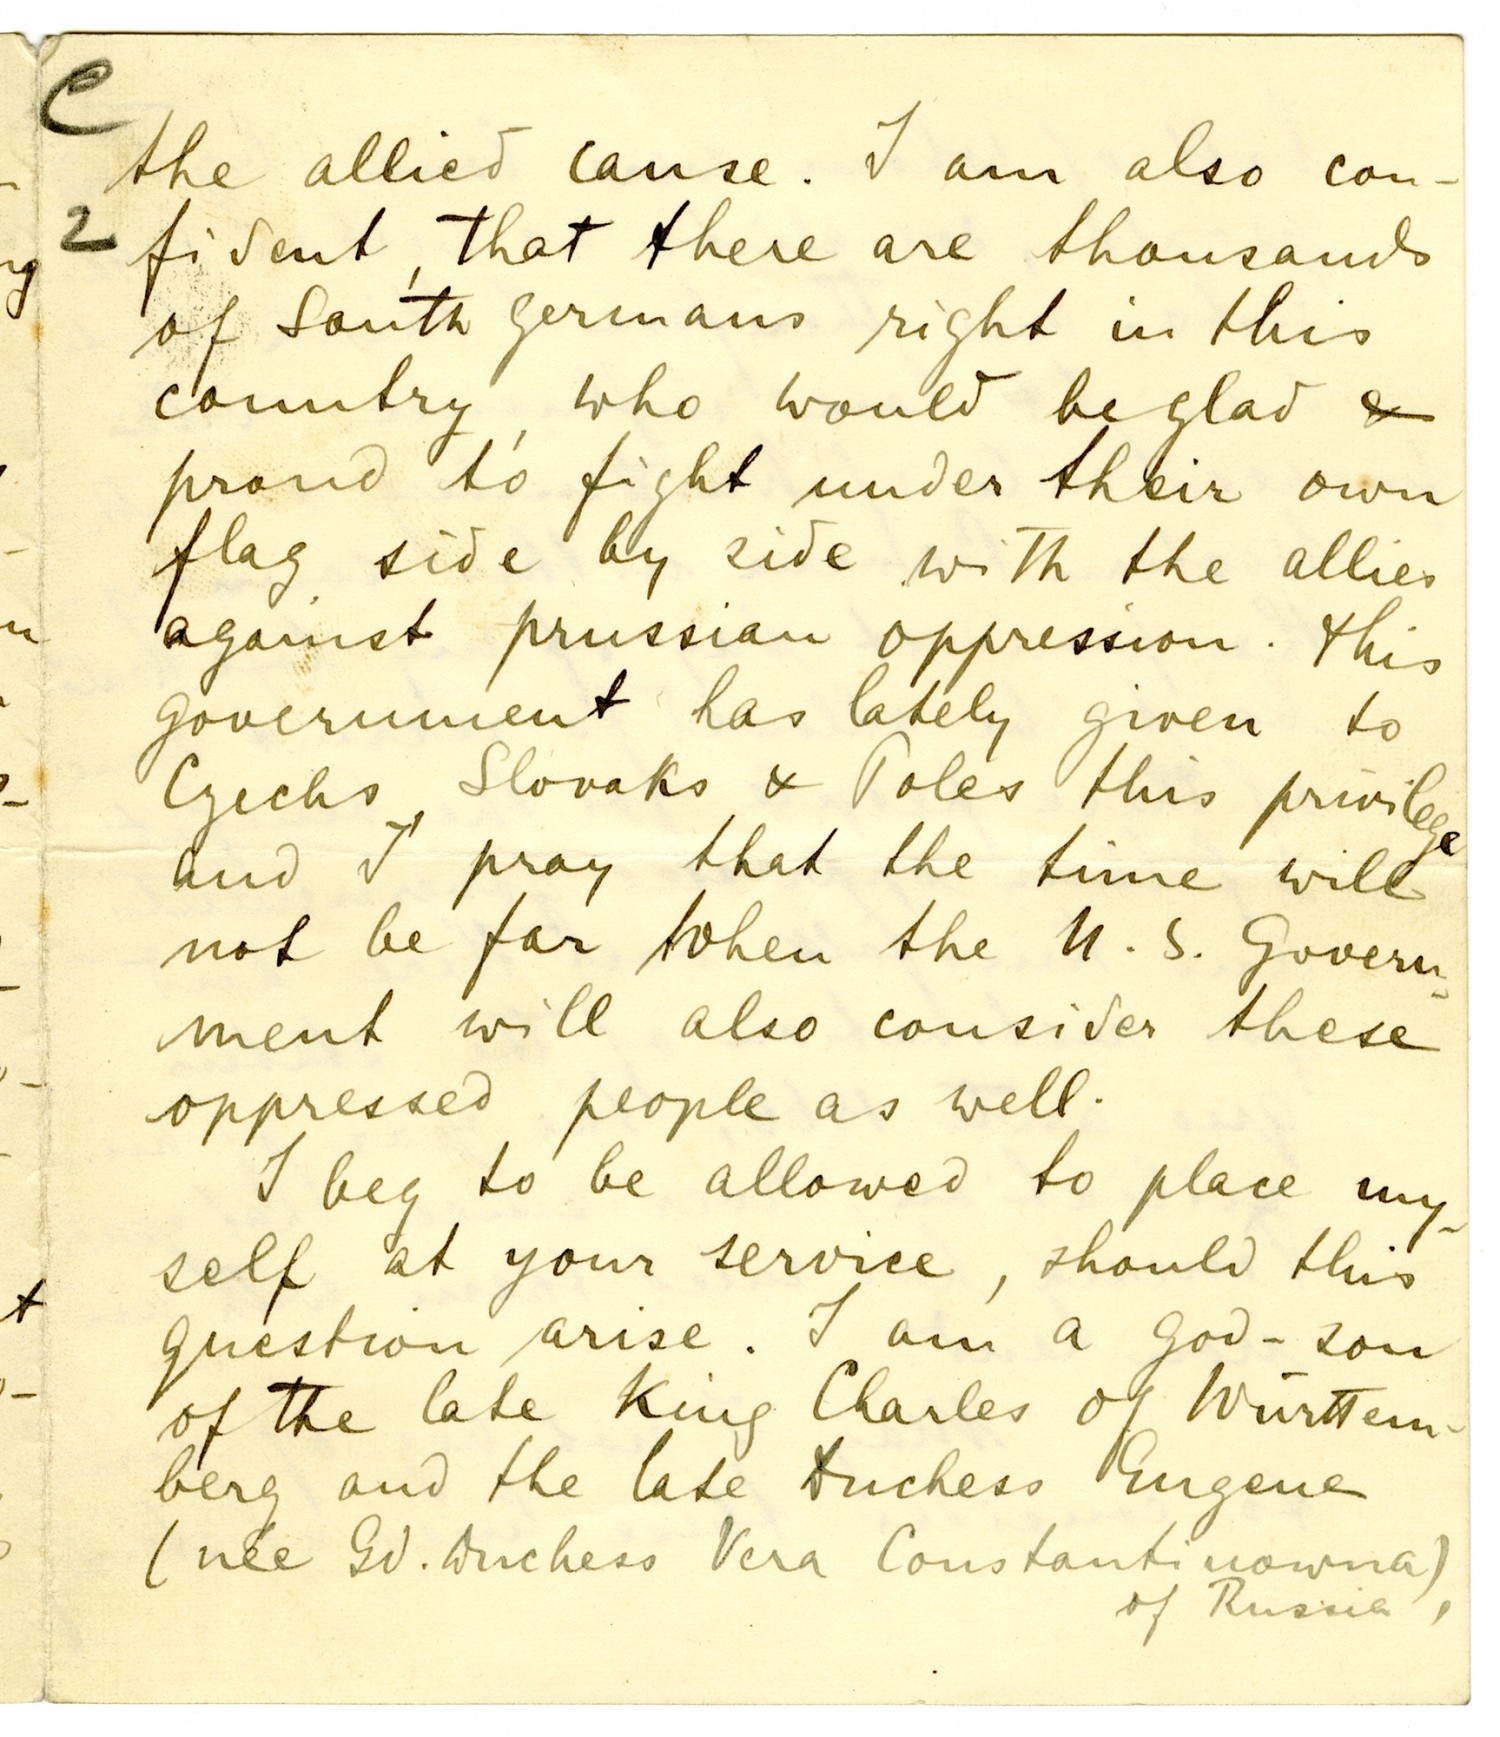 C
the allied cause. I am also con-
2 fident, that there are thousands
of South Germans right in this
country, who would be glad &
proud to fight under their own
flag side by side with the allies
against prussian oppression. This
government has lately given to
Czechs, Slovaks & Poles this privilege
and I pray that the time will
not be far when the U. S. Govern-
ment will also consider these
oppressed people as well.
I beg to be allowed to place my-
self at your service, should this
question arise. I am a god-son
of the late King Charles of Württem-
berg and the late Duchess Eugene
(née Gd. Duchess Vera Constantinowna),
of Russia